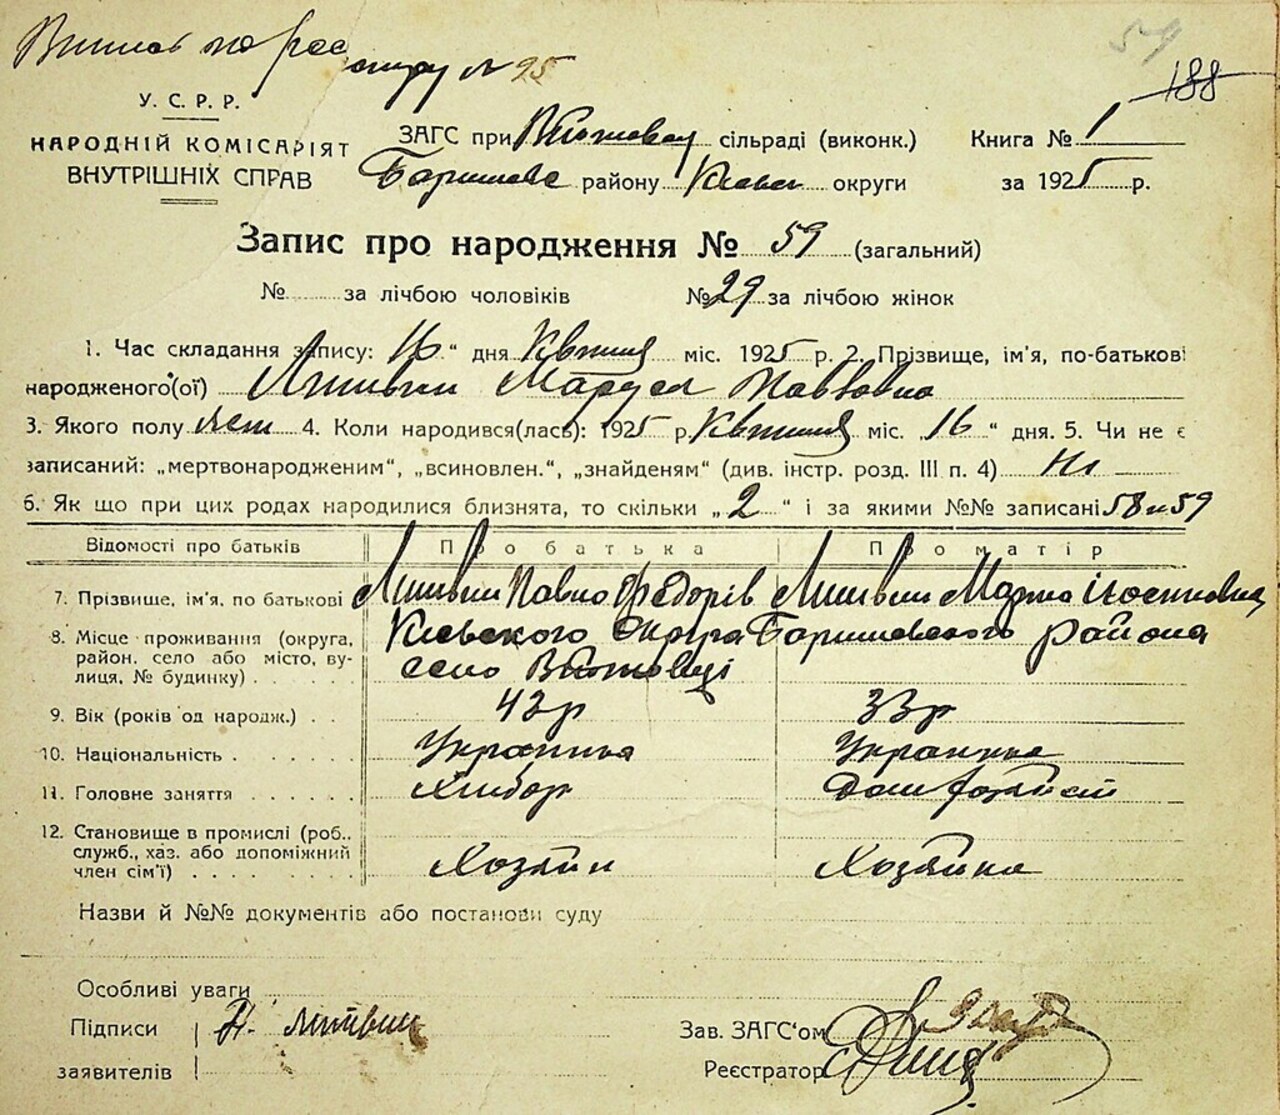 Випис по реє
стру № 95
59
188
У. С. Р. Р.
НАРОДНІЙ КОМІСАРІЯТ
ВНУТРІШНІХ СПРАВ
ЗАГС при сільраді (виконк.)
району округи
Книга № 1
за 1925 р.
Запис про народження № 59 (загальний)
№ за лічбою чоловіків № 29 за лічбою жінок
1. Час складання запису: 16 " дня Квітня міс. 1925 р. 2. Прізвище, ім'я, по-батькові
народженого(ої) Литвин Маруся Павловна
3. Якого полу жен 4. Коли народився(лась): 1925 р. Квітня міс. „16" дня. 5. Чи не є
записаний: „мертвонародженим", „всиновлен.", „знайденям" (див. інстр. розд. III п. 4) Ні
6. Як що при цих родах народилися близнята, то скільки „2" і за якими №№ записані 58 и 59
Відомості про батьків Про батька Про матір
7. Прізвище, ім'я, по батькові Литвин Павло Федорів Литвин Марія
8. Місце проживання (округа, Киевского округа Баришевского района
район, село або місто, ву- село Войтовці
лиця, № будинку)
9. Вік (років од народж.) 42р 33р
10. Національність Українець Українка
11. Головне заняття Хлібор
12. Становище в промислі (роб.,
служб., хаз. або допоміжний Хозяин Хозяйка
член сім'ї)
Назви й №№ документів або постанови суду
Особливі уваги
Підписи П. Литвин Зав. ЗАГС'ом
заявителів Реєстратор